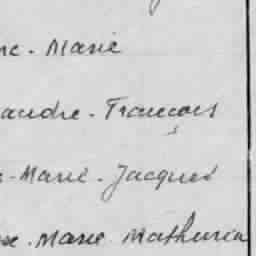 ne. Marie
andre. François
- Marie. Jacques
Marie Mathurin